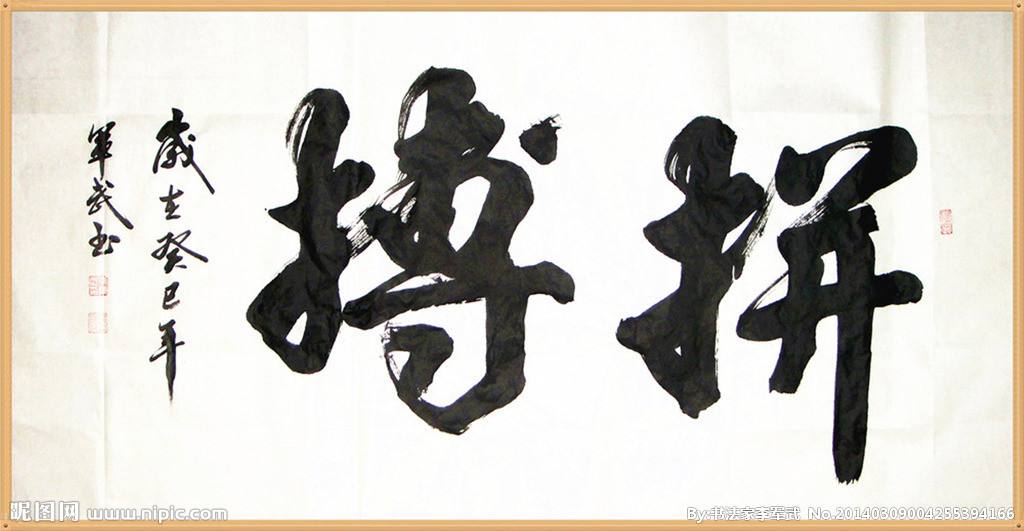 拼搏
歲在癸巳年
軍武书
昵图网 www.nipic.com
By:书法家李军武 No.20140309004255394166